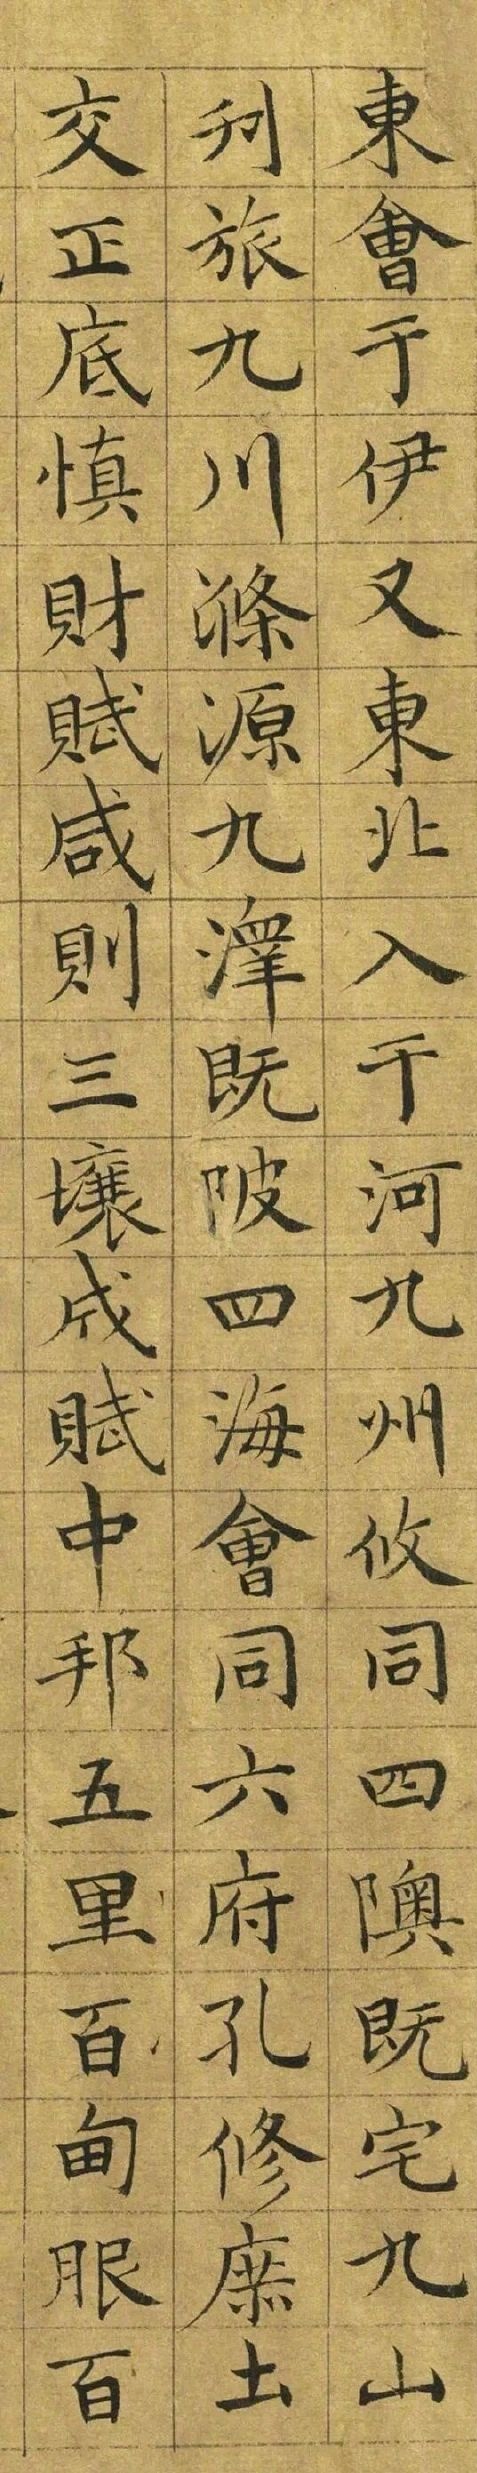 東會于伊又東北入于河九州攸同四隩既宅九山
刋旅九川滌源九澤既陂四海會同六府孔修庶土
交正底慎財賦咸則三壤成賦中邦五里百甸服百